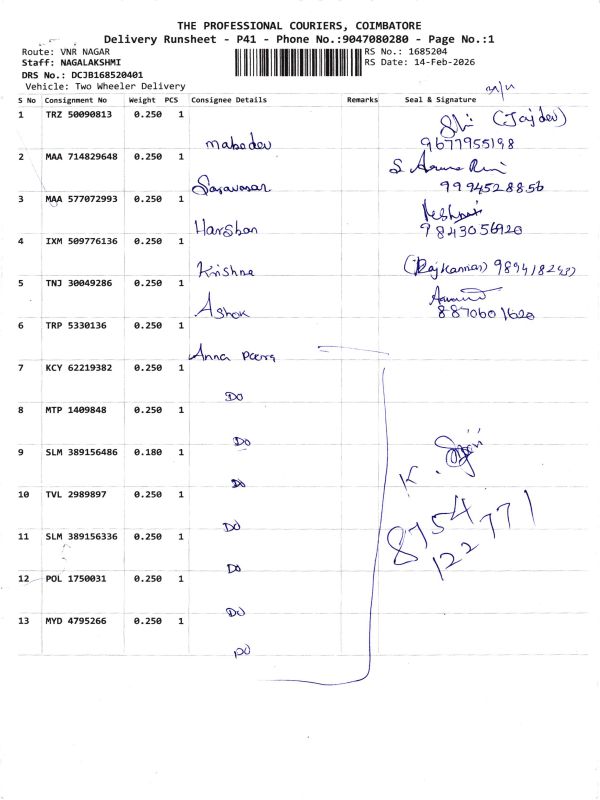 THE PROFESSIONAL COURIERS, COIMBATORE
Delivery Runsheet - P41 - Phone No.:9047080280 - Page No.:1
Route: VNR NAGAR
RS No.: 1685204
Staff: NAGALAKSHMI
RS Date: 14-Feb-2026
DRS No.: DCJB168520401
Vehicle: Two Wheeler Delivery
S No Consignment No Weight PCS Consignee Details Remarks Seal & Signature
1 TRZ 50090813 0.250 1 (Jajdev)
mahadev 9677955198
2 MAA 714829648 0.250 1
Saravanan 9994528856
3 MAA 577072993 0.250 1
Harshan 9843056920
4 IXM 509776136 0.250 1
Krishna (Rajkannan)
5 TNJ 30049286 0.250 1
Ashok 8870601620
6 TRP 5330136 0.250 1
Anna
7 KCY 62219382 0.250 1
DO
8 MTP 1409848 0.250 1
DO
9 SLM 389156486 0.180 1
DO
10 TVL 2989897 0.250 1
DO
11 SLM 389156336 0.250 1
DO
12 POL 1750031 0.250 1
DO
13 MYD 4795266 0.250 1
DO
K.
8754
122771